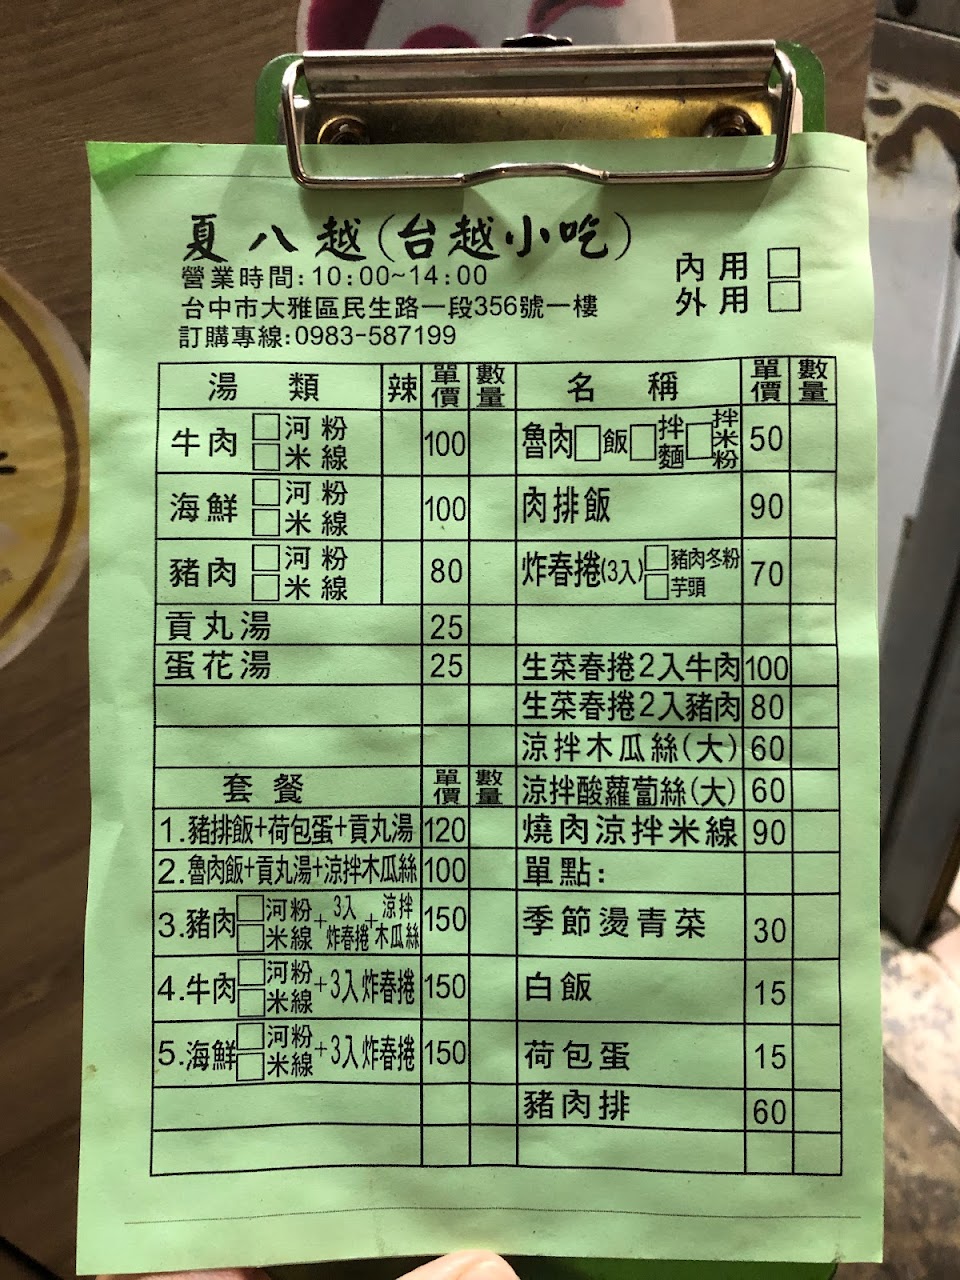 夏八越(台越小吃)
營業時間:10:00~14:00
台中市大雅區民生路一段356號一樓
訂購專線:0983-587199
內用□
外用□
湯類 辣 單價 數量
牛肉 □河粉 □米線 100
海鮮 □河粉 □米線 100
豬肉 □河粉 □米線 80
貢丸湯 25
蛋花湯 25
套餐 單價 數量
1.豬排飯+荷包蛋+貢丸湯 120
2.魯肉飯+貢丸湯+涼拌木瓜絲 100
3.豬肉 □河粉 □米線 +3入炸春捲+涼拌木瓜絲 150
4.牛肉 □河粉 □米線 +3入炸春捲 150
5.海鮮 □河粉 □米線 +3入炸春捲 150
名稱 單價 數量
魯肉□飯□拌麵□拌米粉 50
肉排飯 90
炸春捲(3入) □豬肉冬粉 □芋頭 70
生菜春捲2入牛肉 100
生菜春捲2入豬肉 80
涼拌木瓜絲(大) 60
涼拌酸蘿蔔絲(大) 60
燒肉涼拌米線 90
單點:
季節燙青菜 30
白飯 15
荷包蛋 15
豬肉排 60